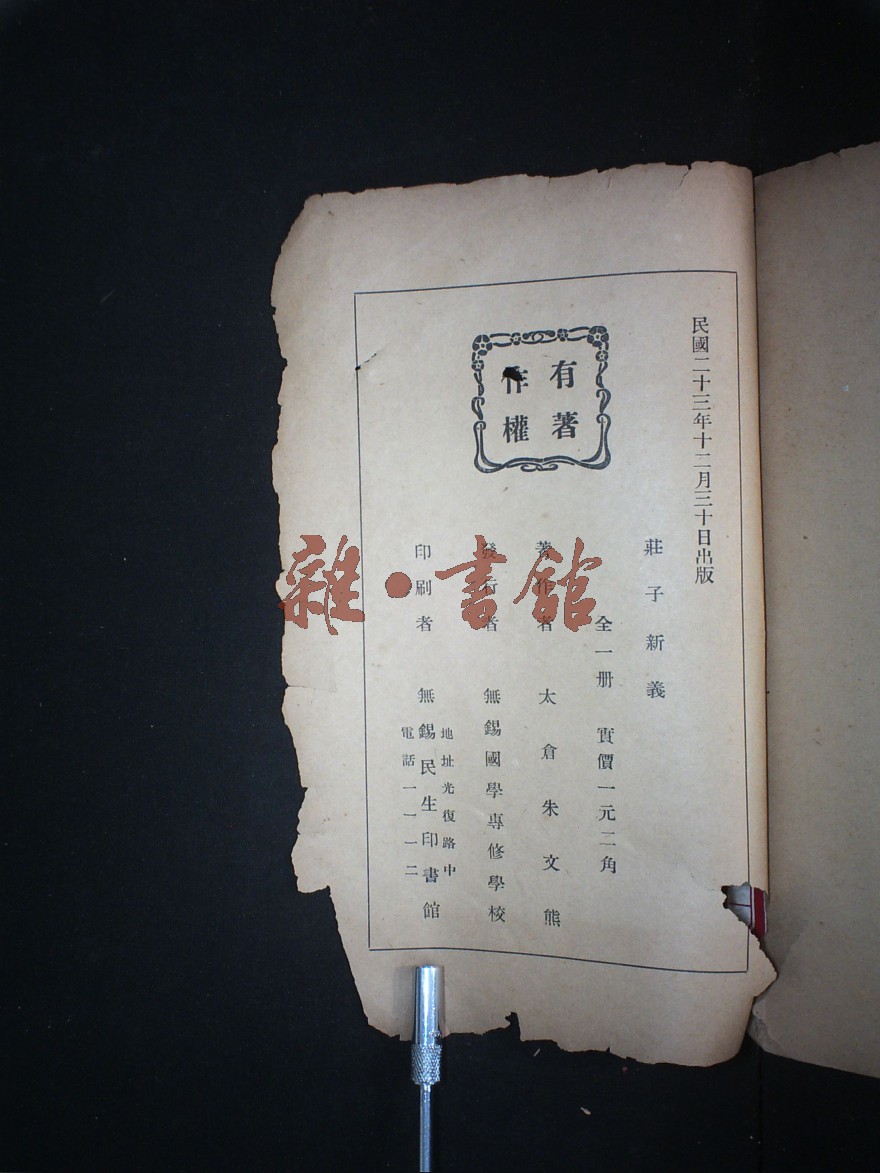 民國二十三年十二月三十日出版
莊子新義
全一册 實價一元二角
著作者 太倉朱文熊
發行者 無錫國學專修學校
印刷者 無錫民生印書館
地址光復路中
電話一一一二
有著
作權
雜·書館